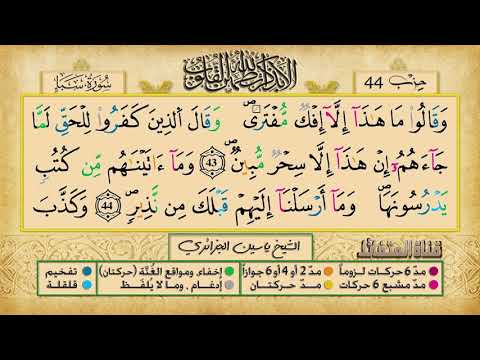 حزب 44
ألا بذكر الله تطمئن القلوب
سورة سبأ
وَقَالُوا۟ مَا هَٰذَآ إِلَّآ إِفْكٌ مُّفْتَرًىۖ وَقَالَ ٱلَّذِينَ كَفَرُوا۟ لِلْحَقِّ لَمَّا
جَآءَهُمُۥٓ إِنْ هَٰذَآ إِلَّا سِحْرٌ مُّبِينٌۖ 43 وَمَآ ءَاتَيْنَٰهُم مِّن كُتُبٍ
يَدْرُسُونَهَاۖ وَمَآ أَرْسَلْنَآ إِلَيْهِمْ قَبْلَكَ مِن نَّذِيرٍۖ 44 وَكَذَّبَ
قناة
الشيخ ياسين الجزائري
مدّ 6 حركات لزوماً مدّ 2 أو 4 أو 6 جوازاً إخفاء، ومواقع الغُنَّة (حركتان) تفخيم
مدّ مشبع 6 حركات مدّ حركتان إدغام، وما لا يُلفَظ قلقلة